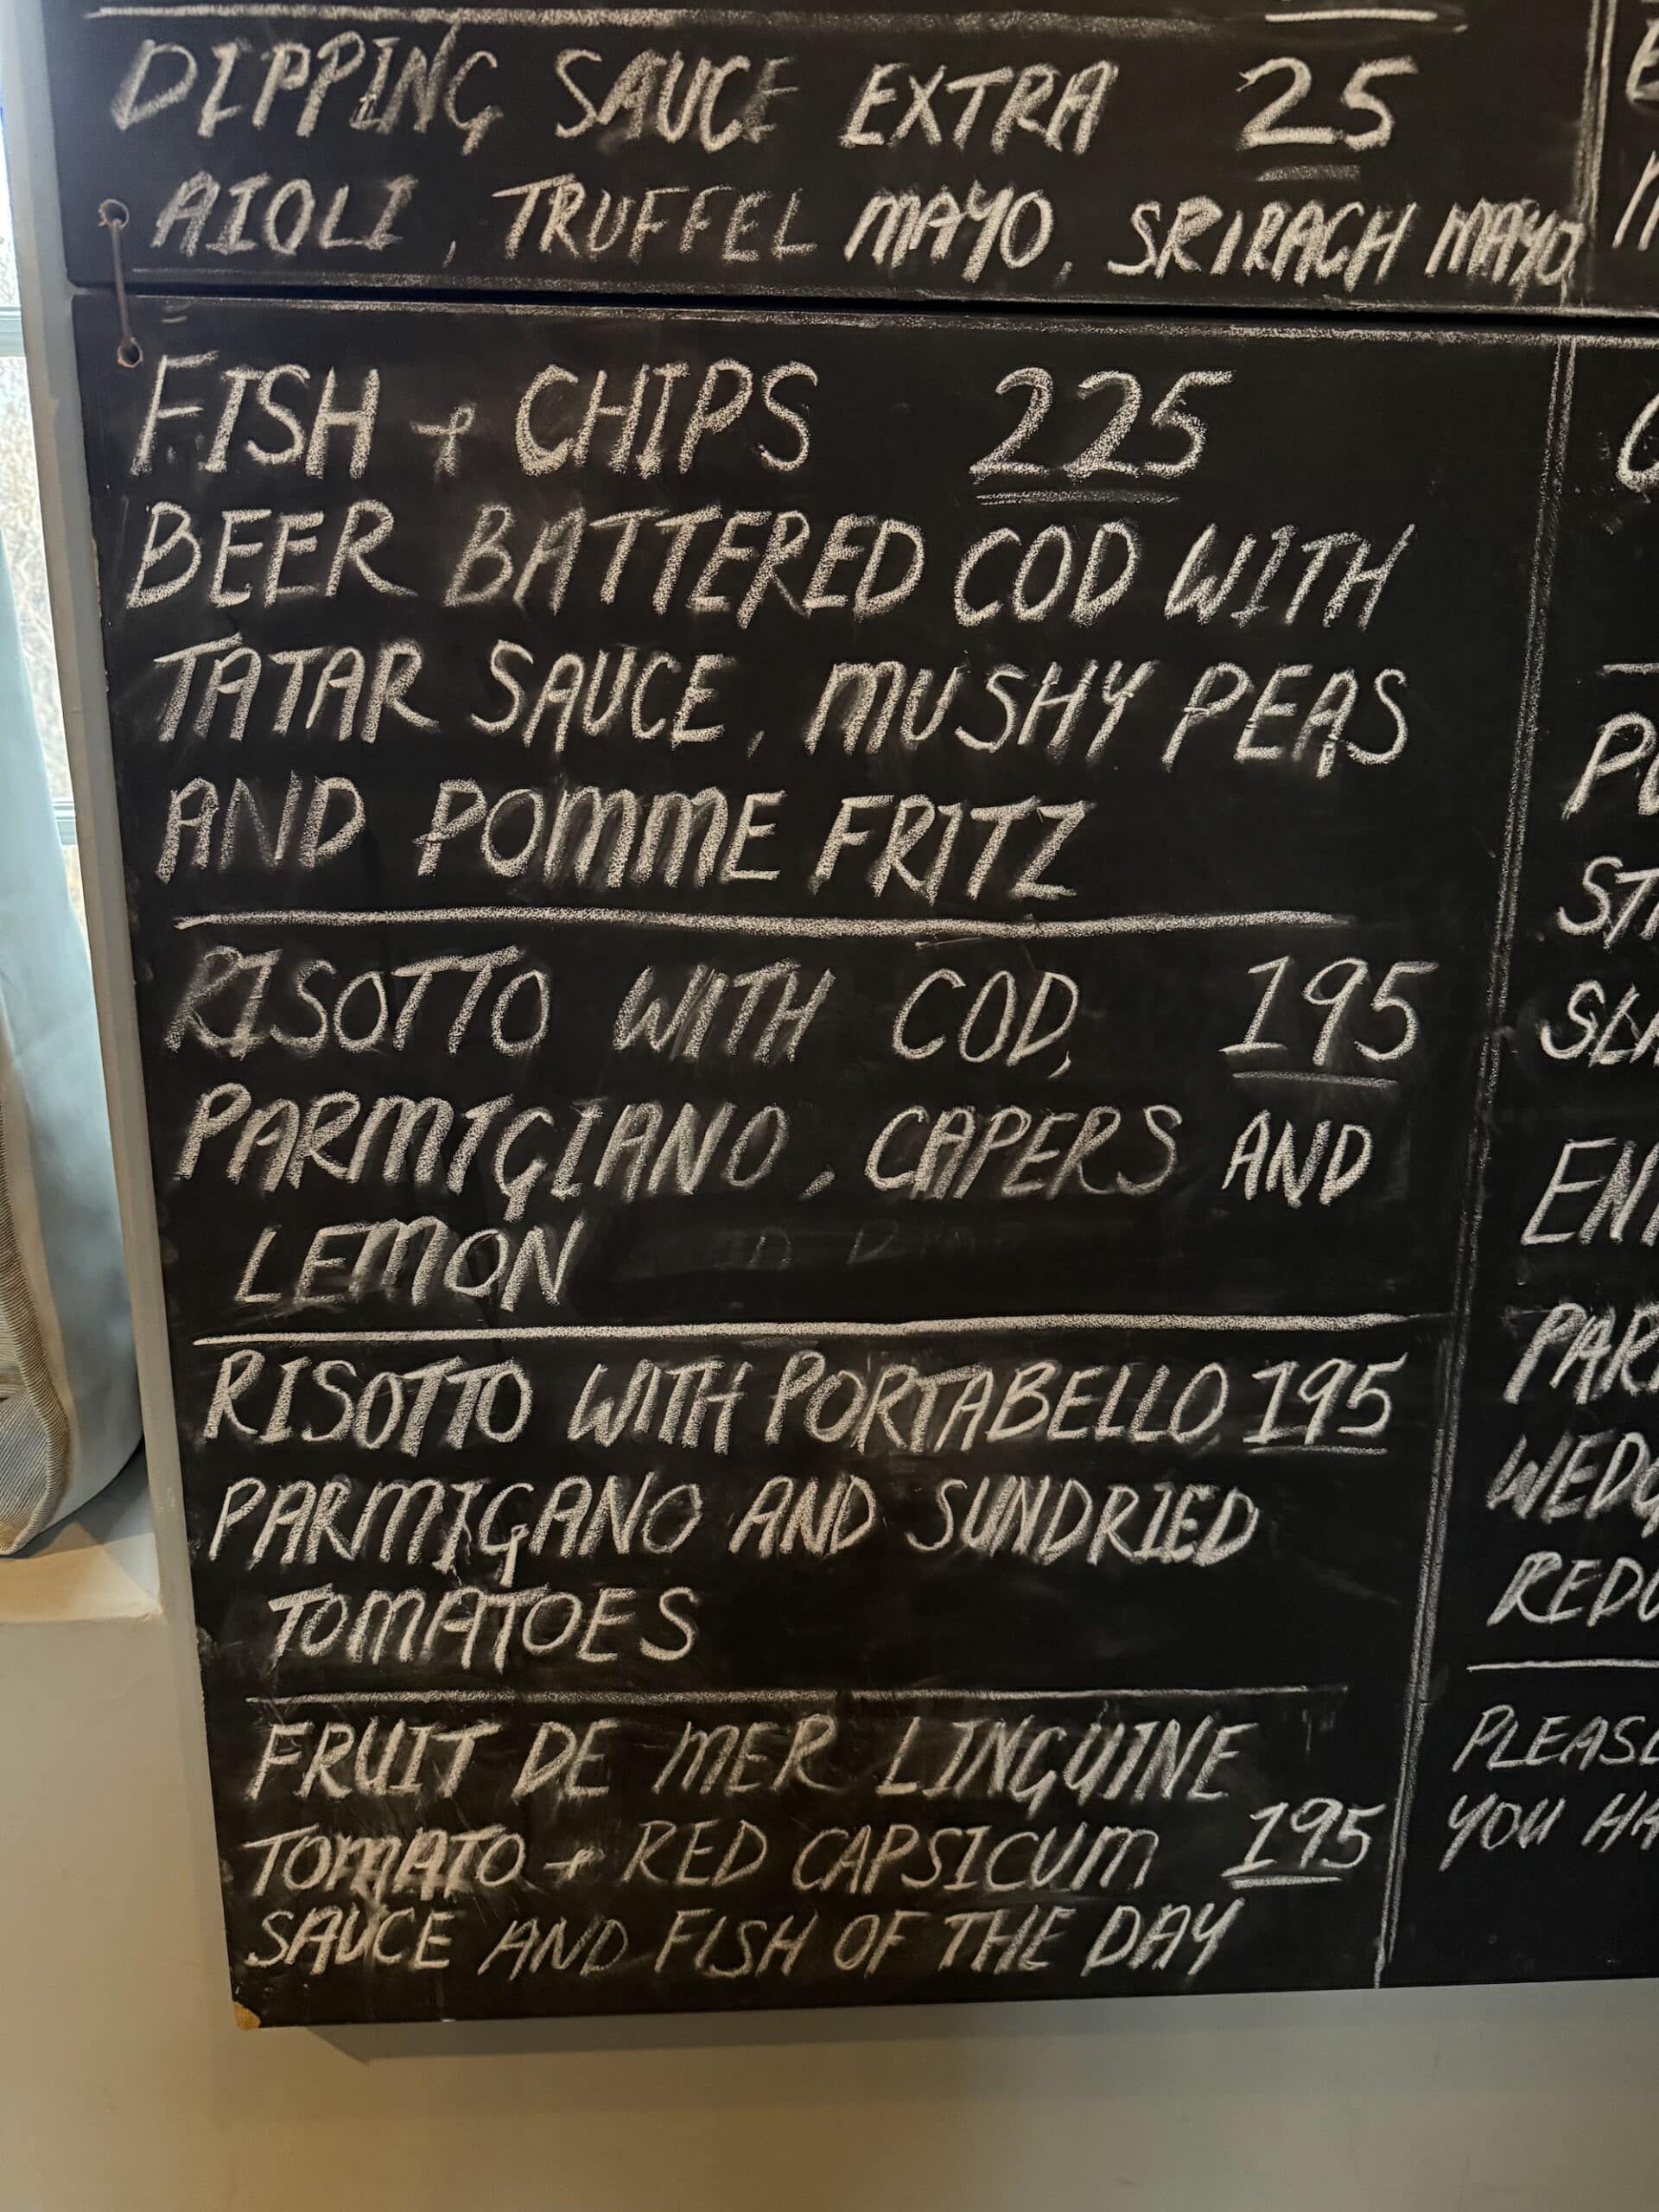 DIPPING SAUCE EXTRA 25
AIOLI, TRUFFEL MAYO, SRIRACH MAYO
FISH + CHIPS 225
BEER BATTERED COD WITH
TATAR SAUCE, MUSHY PEAS
AND POMME FRITZ
RISOTTO WITH COD, 195
PARMIGIANO, CAPERS AND
LEMON
RISOTTO WITH PORTABELLO, 195
PARMIGANO AND SUNDRIED
TOMATOES
FRUIT DE MER LINGUINE
TOMATO + RED CAPSICUM 195
SAUCE AND FISH OF THE DAY
PLEASE
YOU HA